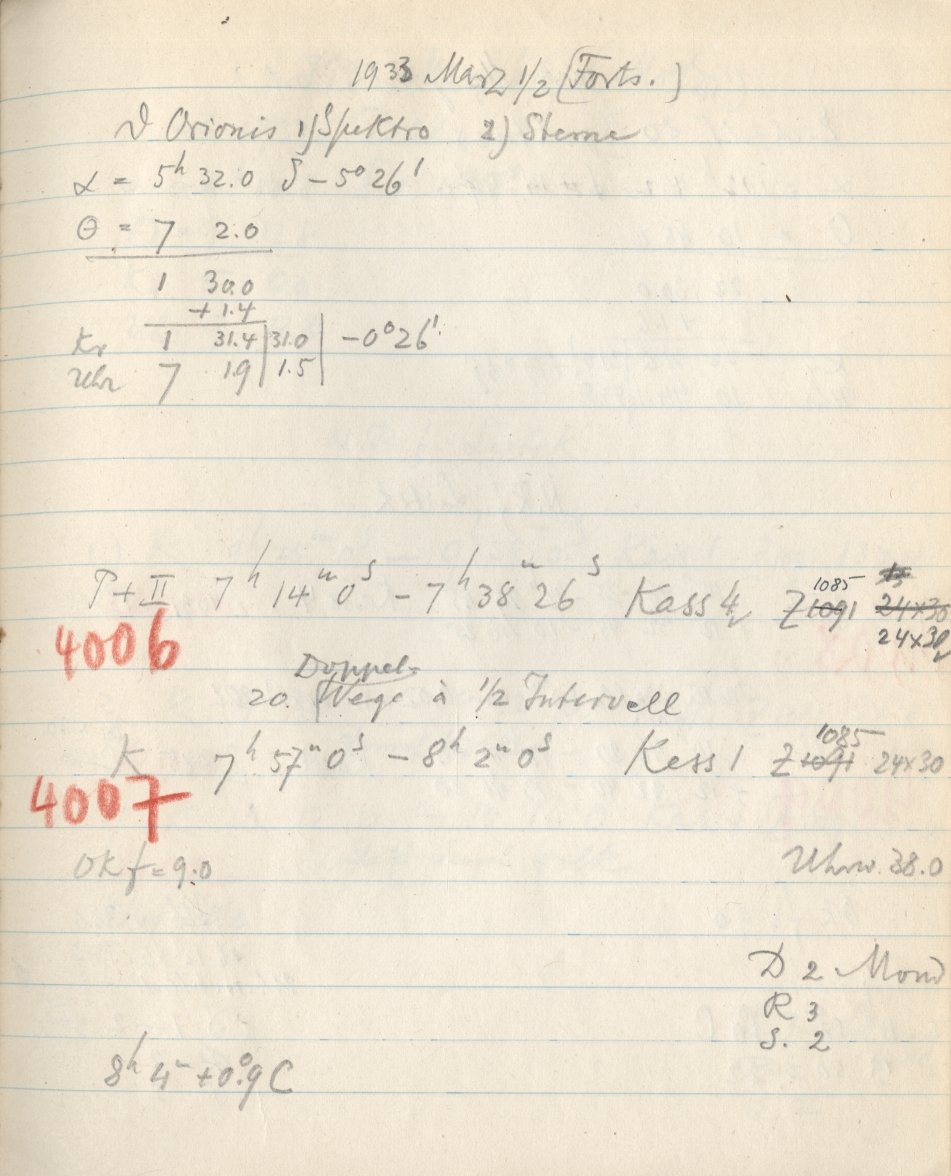 1933 März 1/2 (Forts.)
ϑ Orionis 1) Spektro 2) Sterne
α = 5h 32.0 δ - 5° 26'
Θ = 7 2.0
1 30.0
+ 1.4
Kr 1 31.4 | 31.0 | - 0° 26'
Uhr 7 1.9 | 1.5 |
P + II 7h 14m 0s - 7h 38m 26s Kass 4 Z 1091 1085 24x30 24x30
4006
20 Doppel-Wege à 1/2 Intervall
K 7h 57m 0s - 8h 2m 0s Kass 1 Z 1091 1085 24x30
4007
OK f = 9.0 Uhrw. 38.0
D 2 Mond
R 3
S. 2
8h 4m + 0°.9 C